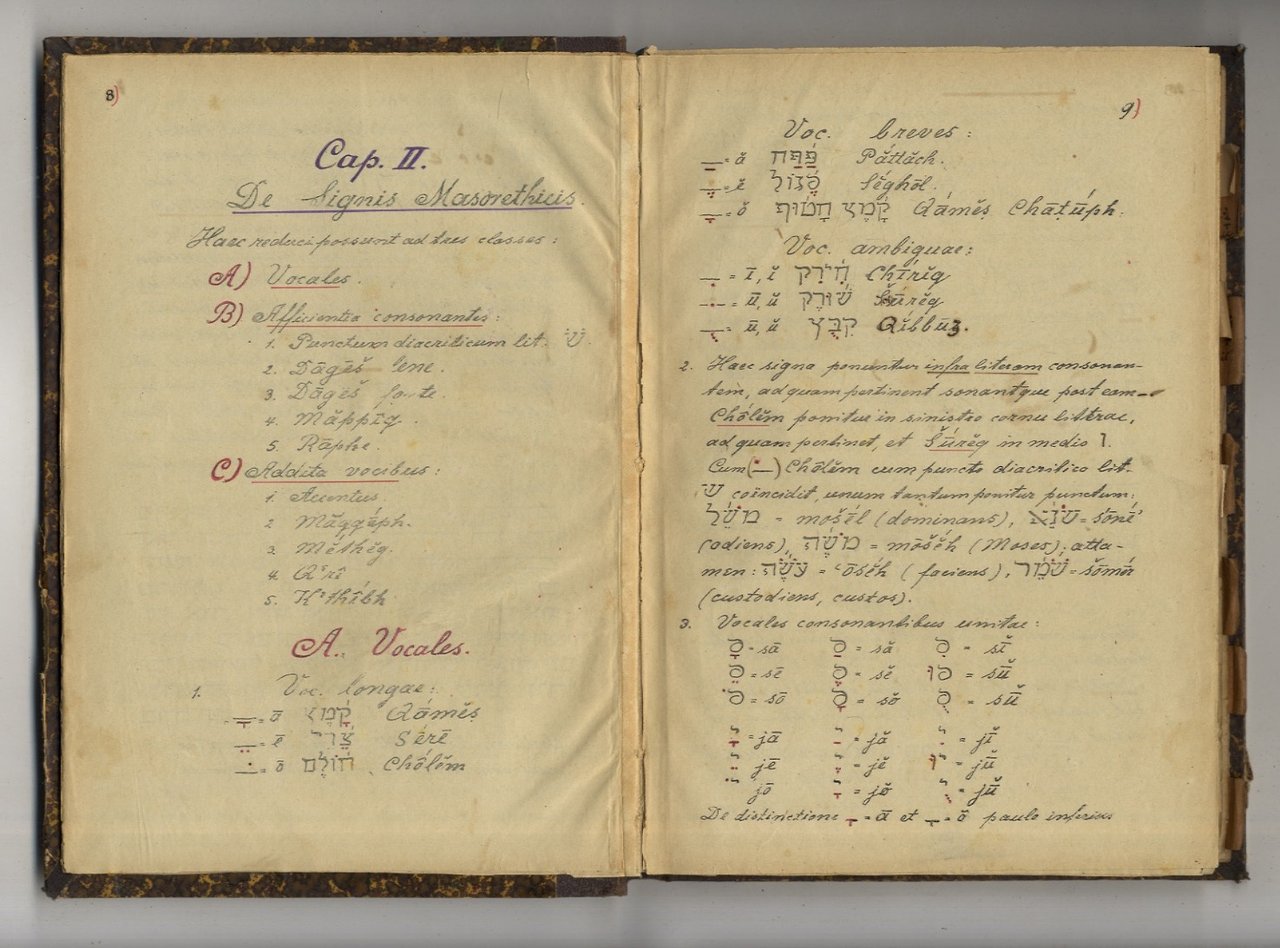 8)
Cap. II.
De Signis Masorethicis.
Haec reduci possunt ad tres classes:
A) Vocales.
B) Afficientia consonantes:
1. Punctum diacriticum lit. שׁ.
2. Dāgēš lene.
3. Dāgēš forte.
4. Măppīq.
5. Rāphe.
C) Addita vocibus:
1. Accentus.
2 Măqqēph.
3. Mĕthĕg.
4. Qᵉrî
5. Kᵉthîbh
A. Vocales.
1. Voc. longae:
ָ = ā קָמֶץ Qāmĕṣ
ֵ = ē צֵרֵי Ṣērē
ֹ = ō חוֹלֶם Chōlĕm
9)
Voc. breves:
ַ = ă פַּתַּח Păttăch.
ֶ = ĕ סֶגוֹל Sĕghōl.
ָ = ŏ קָמֶץ חָטוּף Qāmĕṣ Chāṭūph.
Voc. ambiguae:
ִ = ī, ĭ חִירֶק Chīrĕq
ּ = ū, ŭ שׁוּרֶק Šūrĕq
ֻ = ū, ŭ קִבֻּץ Qĭbbūz.
2. Haec signa ponuntur infra literam consonan-
tem, ad quam pertinent sonantque post eam-
Chōlĕm ponitur in sinistro cornu litterae,
ad quam pertinet, et Šūrĕq in medio ו.
Cum (ֹ) Chōlĕm cum puncto diacritico lit.
שׁ coïncidit, unum tantum ponitur punctum:
משֵׁל = mošēl (dominans), שׂנֵא = śōnē'
(odiens), משֶׁה = mōšĕh (Moses); atta-
men: עֹשֶׂה = ʿōśĕh (faciens), שֹׁמֵר = šōmēr
(custodiens, custos).
3. Vocales consonantibus unitae:
סָ = sā סַ = să סִ = sĭ
סֵ = sē סֶ = sĕ סוּ = sŭ
סֹ = sō סָ = sŏ סֻ = sŭ
יָ = jā יַ = jă יִ = jĭ
יֵ = jē יֶ = jĕ יוּ = jŭ
יֹ jō יָ = jŏ יֻ = jŭ
De distinctione ָ = ā et ָ = ŏ paulo inferius